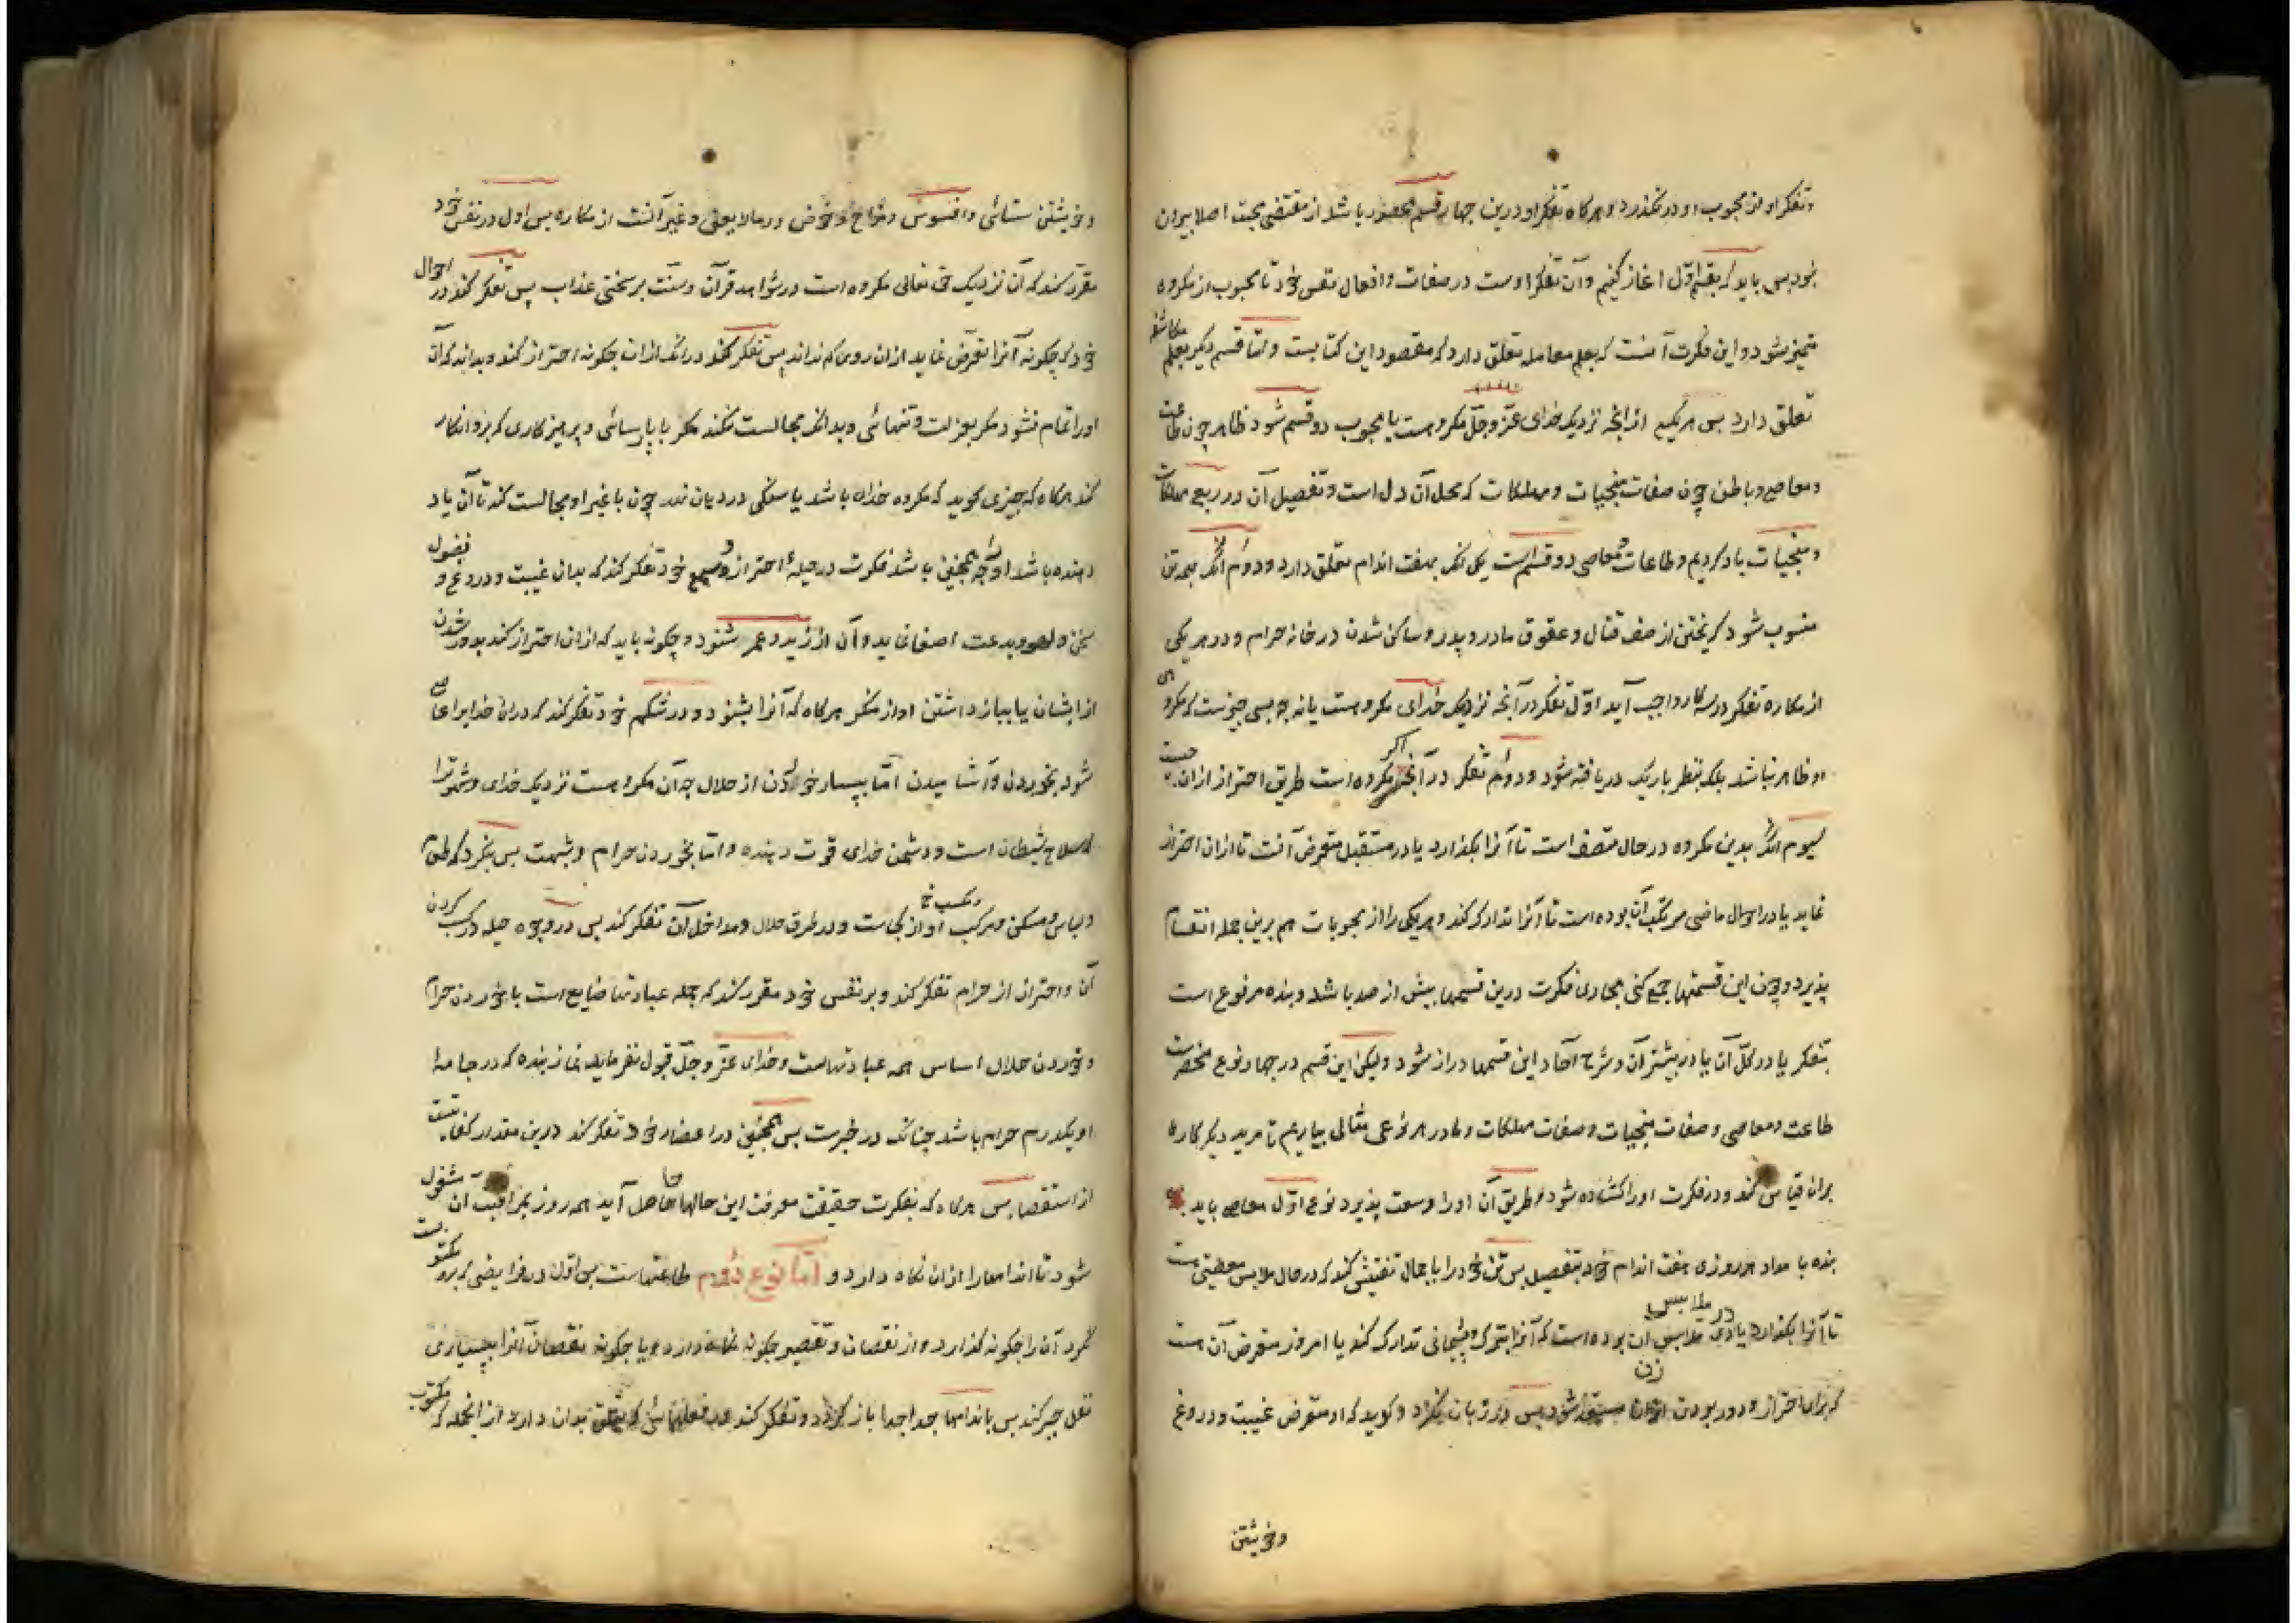 و تفکر او از محبوب او در نگذرد و هرگاه تفکر او درین چهار قسم محصور باشد از مقتضی محبت اصلا بیرون
نبود پس باید که بقسم اول اغاز کنیم و آن تفکر اوست در صفات و افعال نفس خود تا محبوب از مکروه
متمیز شود و این فکرت آنست که بعلم معامله تعلق دارد که مقصود این کتابست و اما قسم دیکر بعلم مکاشفه
تعلق دارد پس هریکی از انچه نزدیک خدای عز و جل مکروهست یا محبوب دو قسم شود ظاهر چون طاعت
و معاصی و باطن چون صفات منجیات و مهلکات که محل آن دل است و تفصیل آن در ربع مهلکات
و منجیات یاد کردیم و طاعات و معاصی دو قسم است یکی انکه بهفت اندام تعلق دارد و دوم انکه بهمه تن
منسوب شود کریختن از صف قتال و عقوق مادر و پدر و ساکن شدن در خانه حرام و در هریکی
از مکاره تفکر در سه کار واجب آید اول تفکر در آنچه نزدیک خدای مکروهست یا نه چه بسی چیزست که مکروهی
او ظاهر نباشد بلکه بنظر باریک دریافته شود و دوم تفکر در آنچه اکر مکروه است طریق احتراز ازان چیست
سیوم انکه بدین مکروه در حال متصف است تا آنرا بکذارد یا در مستقبل متعرض آنست تا ازان احتراز
نماید یا در احوال ماضی مرتکب آن بوده است تا آنرا تدارک کند و هریکی را از محبوبات هم برین جمله انقسام
پذیرد و چون این قسمتها جمع کنی مجاری فکرت درین قسمها بیش از صد باشد و بنده مرفوع است
بتفکر یا در کل آن یا در بیشتر آن و شرح آحاد این قسمها دراز شود ولیکن این قسم در چهار نوع منحصرست
طاعت و معاصی و صفات منجیات و صفات مهلکات و ما در هر نوعی مثالی بیاریم تا مرید دیکر کارها
بران قیاس کند و در فکرت اورا کشاده شود و طریق آن اورا وسعت پذیرد نوع اول معاصی باید که
بنده بامداد هر روزی هفت اندام خود بتفصیل پس تن خود را باجمال تفتیش کند که در حال ملابس معصیتی هست
تا آنرا بکذارد یا دی در ملابس آن بوده است که آنرا بترک و پشیمانی تدارک کند یا امروز متعرض آن هست
که برای احتراز و دور بودن ازان مستعد شود پس در زبان نکرد و کوید که او متعرض غیبت و دروغ
و خویشتن
و خویشتن ستائی و افسوس و مزاح و خوض در ما لا یعنی و غیر آنست از مکاره پس اول در نفس خود
مقرر کند که آن نزدیک حق تعالی مکروه است و در شواهد قرآن و سنت بر سختی عذاب پس تفکر کند در احوال
خود که چکونه آنرا تعرض نماید ازان روی که نداند پس تفکر کند در انکه ازان چکونه احتراز کند و بداند که آن
اورا تمام نشود مکر بعزلت و تنهائی و بدانکه مجالست نکند مکر با پارسائی و پرهیزکاری که برو انکار
کند هرکاه که چیزی کوید که مکروه خدای باشد یا سنکی در دهان نهد چون با غیر او مجالست کند تا آن یاد
دهنده باشد اورا چه همچنین باشد فکرت در حیلهٔ احتراز و در سمع خود تفکر کند که بدان غیبت و دروغ و فضول
سخن و لهو و بدعت اصغا نماید و آن از زید و عمر شنود و چکونه باید که ازان احتراز کند بدور شدن
از ایشان یا بباز داشتن او از منکر هرکاه که آنرا بشنود و در شکم خود تفکر کند که دران خدایرا عاصی
شود بخوردن و آشامیدن اما ببسیار خوردن از حلال چه آن مکروهست نزدیک خدای و شهوت را
که سلاح شیطان است و دشمن خدای قوت دهنده و اما بخوردن حرام و شبهت پس بنکرد که طعام
و لباس و مسکن و مرکب و کسب او از کجاست و در طرق حلال و مداخل آن تفکر کند پس در وجوه حیله در کسب کردن
آن و احتراز از حرام تفکر کند و بر نفس خود مقرر کند که جمله عبادتها ضایع است با خوردن حرام
و خوردن حلال اساس همه عبادتهاست و خدای عز و جل قبول نفرماید نماز بنده که در جامهٔ
او یکدرم حرام باشد چنانک در خبرست پس همچنین در اعضاء خود تفکر کند درین مقدار کفایتست
از استقصا پس هرکاه که بفکرت حقیقت معرفت این حالها حاصل آید همه روز بمراقبت آن مشغول
شود تا اندامها را ازان نکاه دارد و اما نوع دوم طاعتهاست پس اول در فرایضی که برو مکتوبست
نکرد آن را چکونه کذارد و از نقصان و تقصیر چکونه نکاه دارد و یا چکونه نقصان آنرا ببسیاری
نفل جبر کند پس باندامها جدا جدا باز کردد و تفکر کند در فعلهائی که تعلق بدان دارد از انجمله که مکتوب